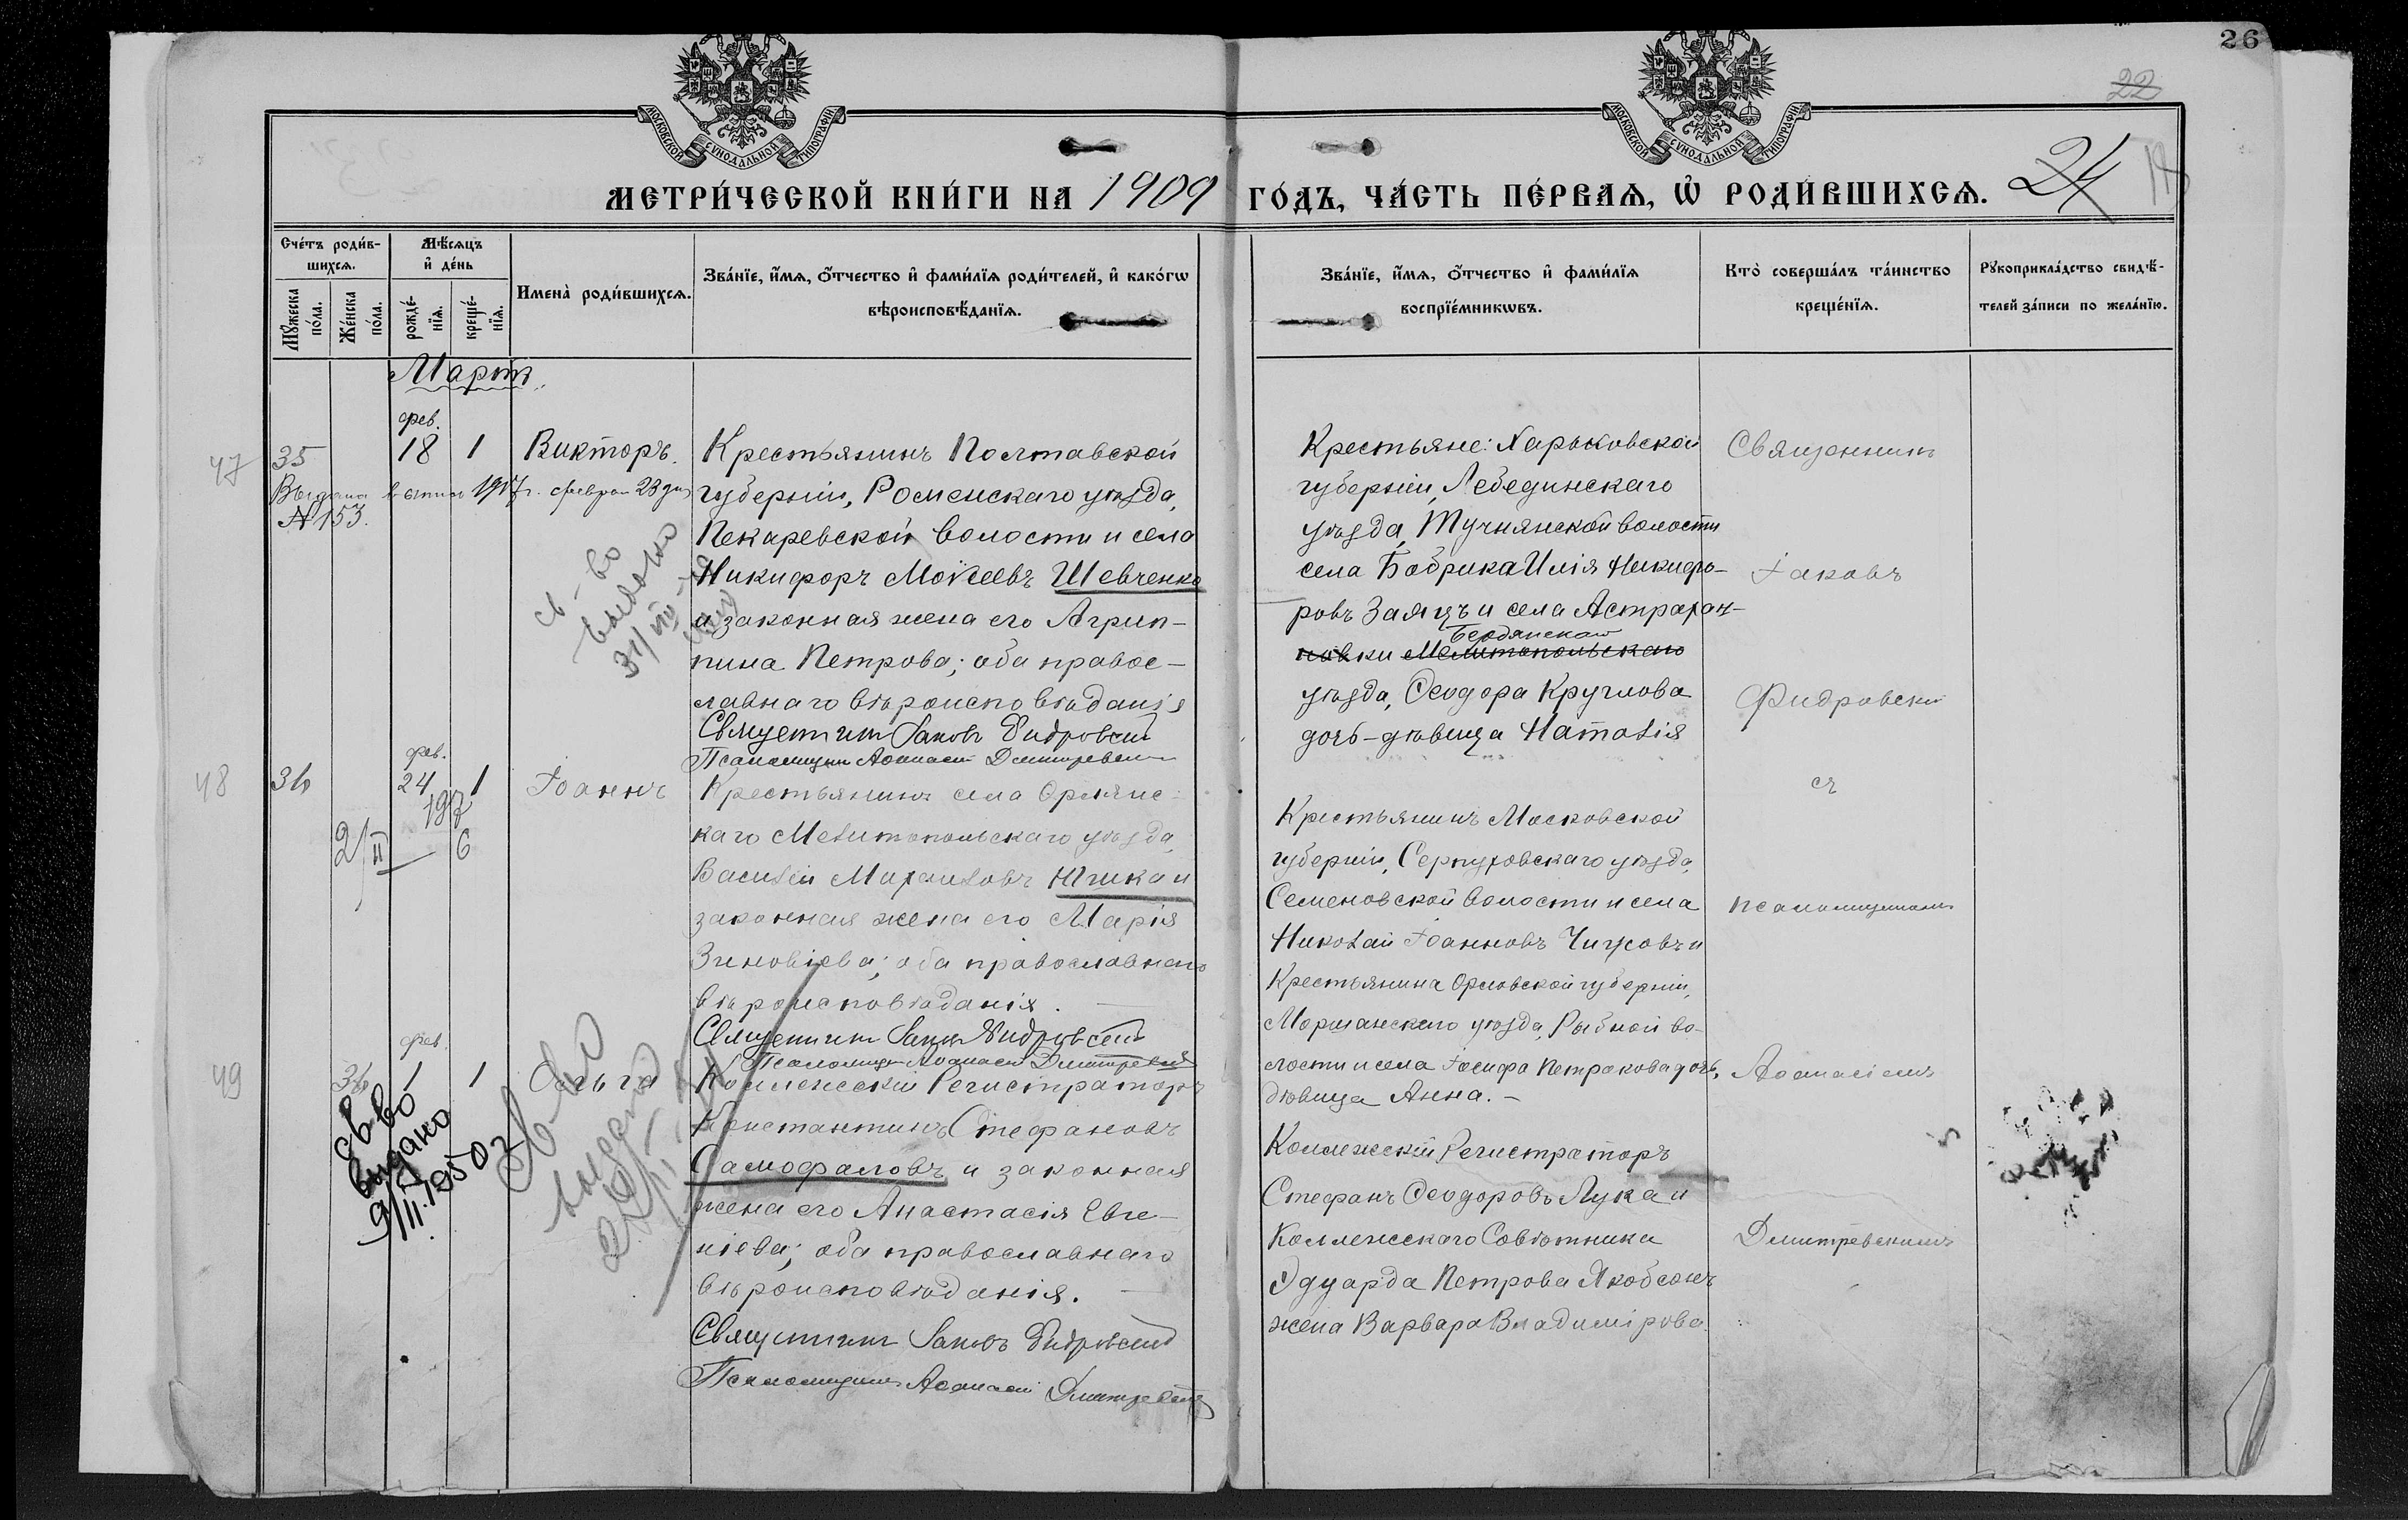 26
22
24
МОСКОВСКОЙ СѴНОДАЛЬНОЙ ТИПОГРАФІИ
МОСКОВСКОЙ СѴНОДАЛЬНОЙ ТИПОГРАФІИ
МЕТРИ́ЧЕСКОЙ КНИ́ГИ НА 1909 ГО́ДЪ, ЧА́СТЬ ПЕ́РВАѦ, Ѡ҆ РОДИ́ВШИХСѦ.
Сче́тъ роди́в-
шихсѧ.
Мꙋ́жеска
по́ла.
Же́нска
по́ла.
Мѣ́сѧцъ
и҆ де́нь
рожде́-
нїѧ.
креще́-
нїѧ.
Имена̀ роди́вшихсѧ.
Зва́нїе, и҆́мѧ, ѻ҆́тчество и҆ фами́лїѧ роди́телей, и҆ како́гѡ
вѣроисповѣ́данїѧ.
Зва́нїе, и҆́мѧ, ѻ҆́тчество и҆ фами́лїѧ
воспрїе́мникѡвъ.
Кто̀ соверша́лъ та́инство
креще́нїѧ.
Рꙋкоприкла́дство свидѣ́-
телей за́писи по жела́нїю.
Мартъ.
фев.
47 35 18 1 Викторъ.
Выдана выпись 1917 г. феврал 23 дня
№ 153.
св-во
выдано
31/VII
Крестьянинъ Полтавской
губерніи, Роменскаго уѣзда,
Пекаревской волости и села
Никифоръ Моѵсеевъ Шевченко
и законная жена его Агрип-
пина Петрова; оба правос-
лавнаго вѣроисповѣданія
Священникъ Іаковъ Фидровскій
Псаломщикъ Аѳанасій Дмитревскій
Крестьяне: Харьковской
губерніи, Лебединскаго
уѣзда, Тучнянской волости
села Бобрика Илія Никифо-
ровъ Заяцъ и села Астрахан-
Бердянскаго
новки Мелитопольскаго
уѣзда, Ѳеодора Круглова
дочь-дѣвица Наталія
Священникъ
Іаковъ
Фидровскій
съ
псаломщикомъ
Аѳанасіемъ
Дмитревскимъ
фев.
48 36 24 1 Іоаннъ
2/II 6
Крестьянинъ села Орлянс-
каго Мелитопольскаго уѣзда,
Василій Михаиловъ Юшка и
законная жена его Марія
Зиновіева; оба православнаго
вѣроисповѣданія.
Священникъ Іаковъ Фидровскій
Псаломщикъ Аѳанасій Дмитревскій
Крестьянинъ Московской
губерніи, Серпуховскаго уѣзда,
Семеновской волости и села
Николай Іоанновъ Чижовъ и
Крестьянина Орловской губерніи,
Моршанскаго уѣзда, Рыбной во-
лости и села Іосифа Петракова дочь,
дѣвица Анна. –
фев.
49 1 1 Ольга
Св во
видано
9/II.1950 г
Св-во
выдано
Коллежскій Регистраторъ
Константинъ Стефановъ
Самофаловъ и законная
жена его Анастасія Евге-
ніева; оба православнаго
вѣроисповѣданія.
Священникъ Іаковъ Фидровскій
Псаломщикъ Аѳанасій Дмитревскій
Коллежскій Регистраторъ
Стефанъ Ѳеодоровъ Лука и
Коллежскаго Совѣтника
Эдуарда Петрова Якобсонъ
жена Варвара Владимірова.